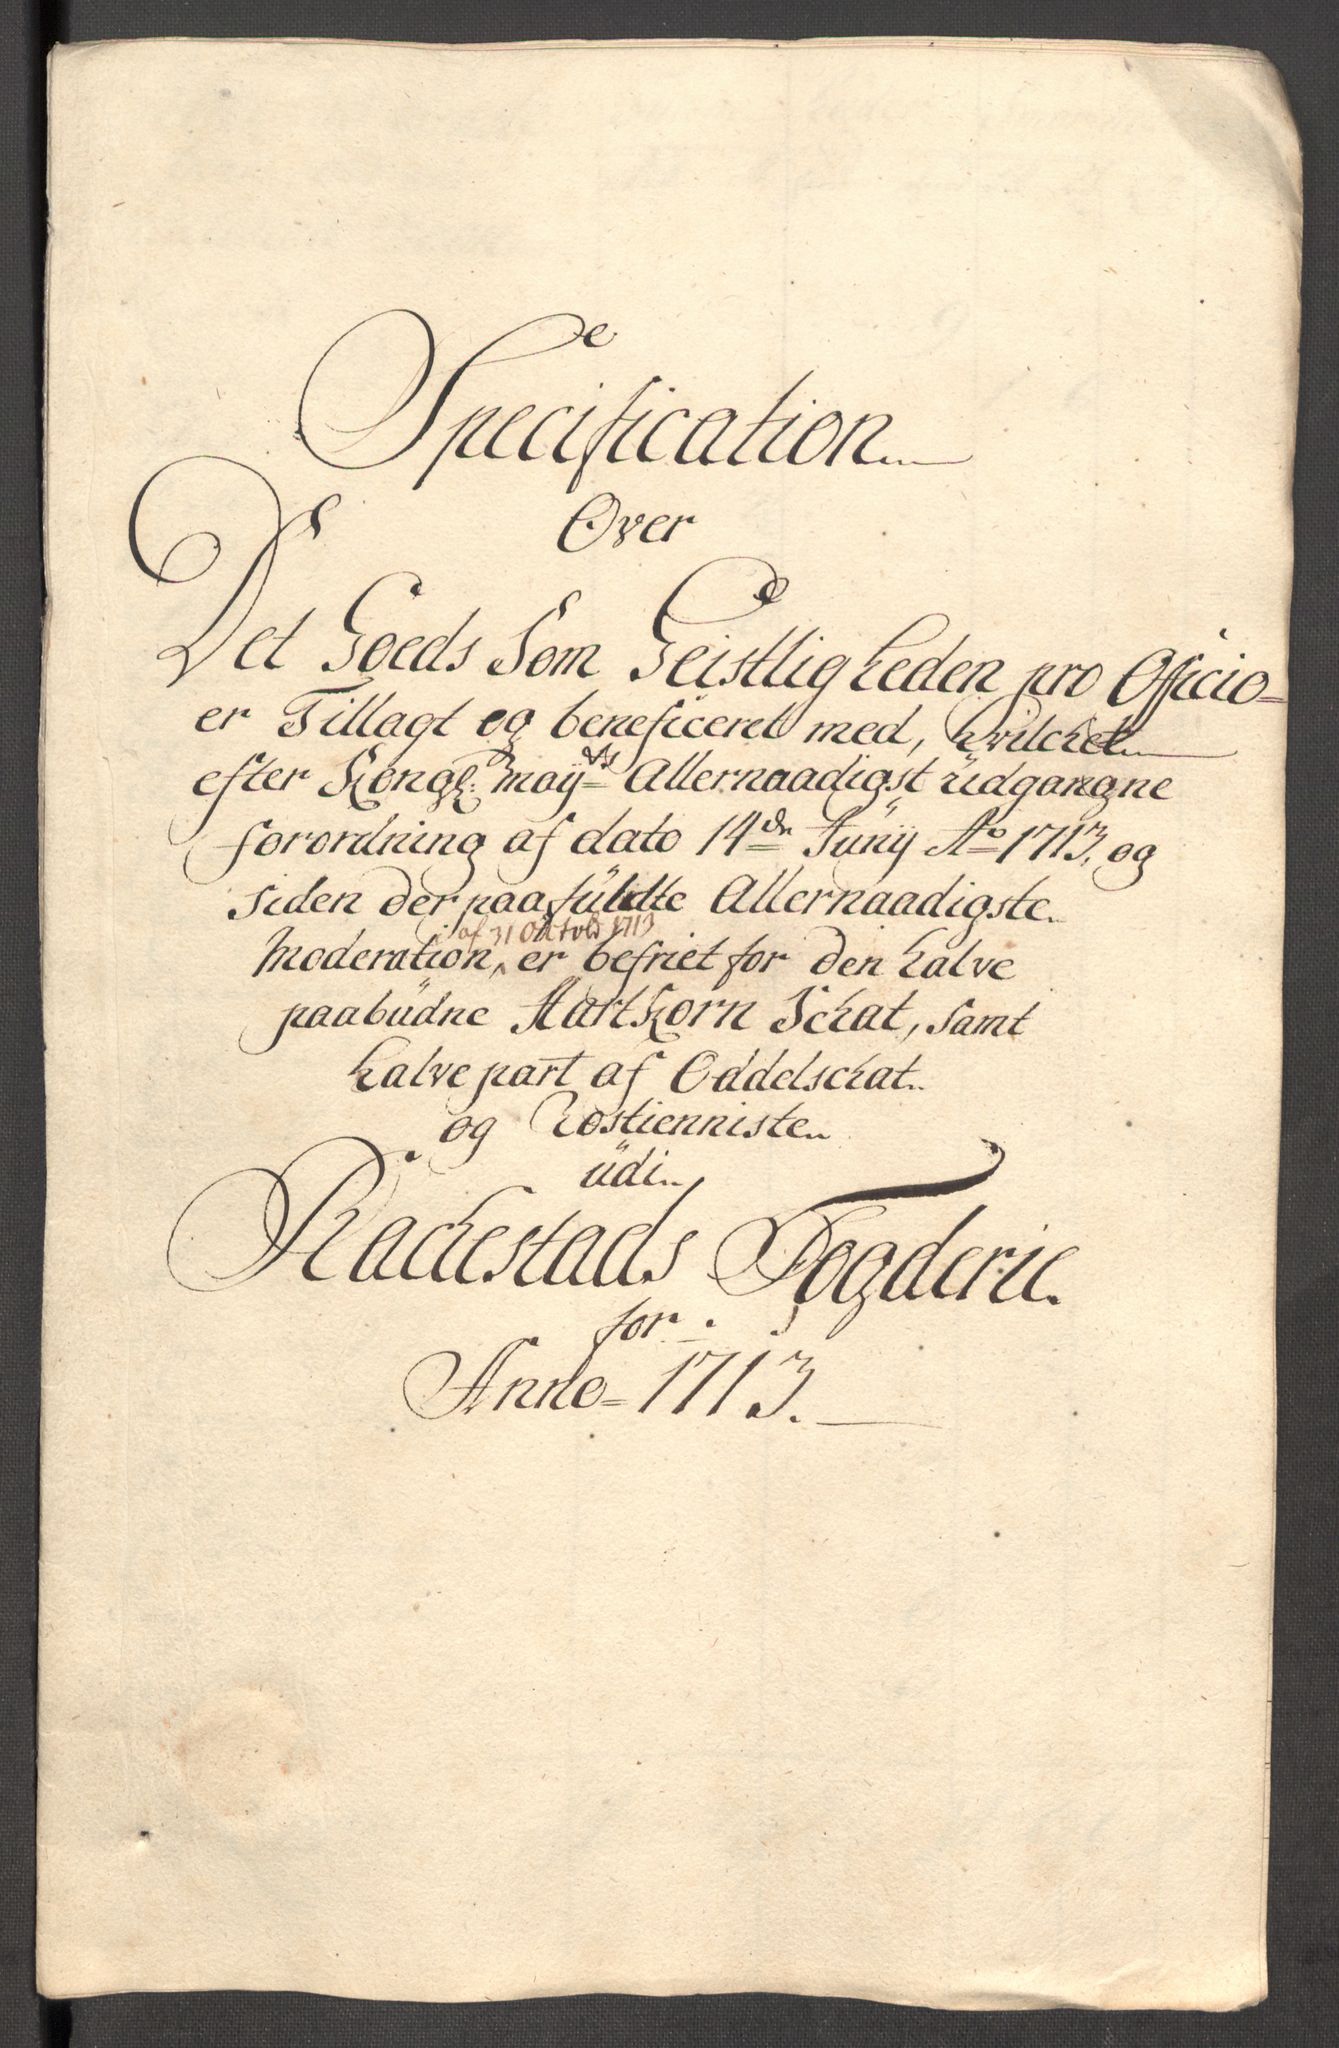 Specification
Over
Det Goeds Som Geistligheden pro Officio
er Tillagt og beneficeret med, hvilchet
efter Kongl: mayts Allernaadigst üdgangne
forordning af dato 14de Junÿ Ao 1713, og
siden der paa fuldte Allernaadigste
af 31 Octobr 1713
Moderation, er befriet for den halve
paabüdne Hartkorn Schat, samt
halve part af Oddelschat
og Rostienniste
üdi
Rackestads Fogderie
for
Anno = 1713.